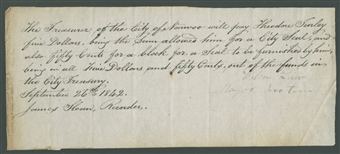 The Treasurer of the City of Nauvoo will pay Theodore Turley
five Dollars, being the Sum allowed him for a City Seal; and
also fifty Cents for a block for a Seal to be furnished by him,
being in all Five Dollars and fifty Cents, out of the funds in
the City Treasury.
September 26th 1842.
James Sloan, Recorder.
Mayor